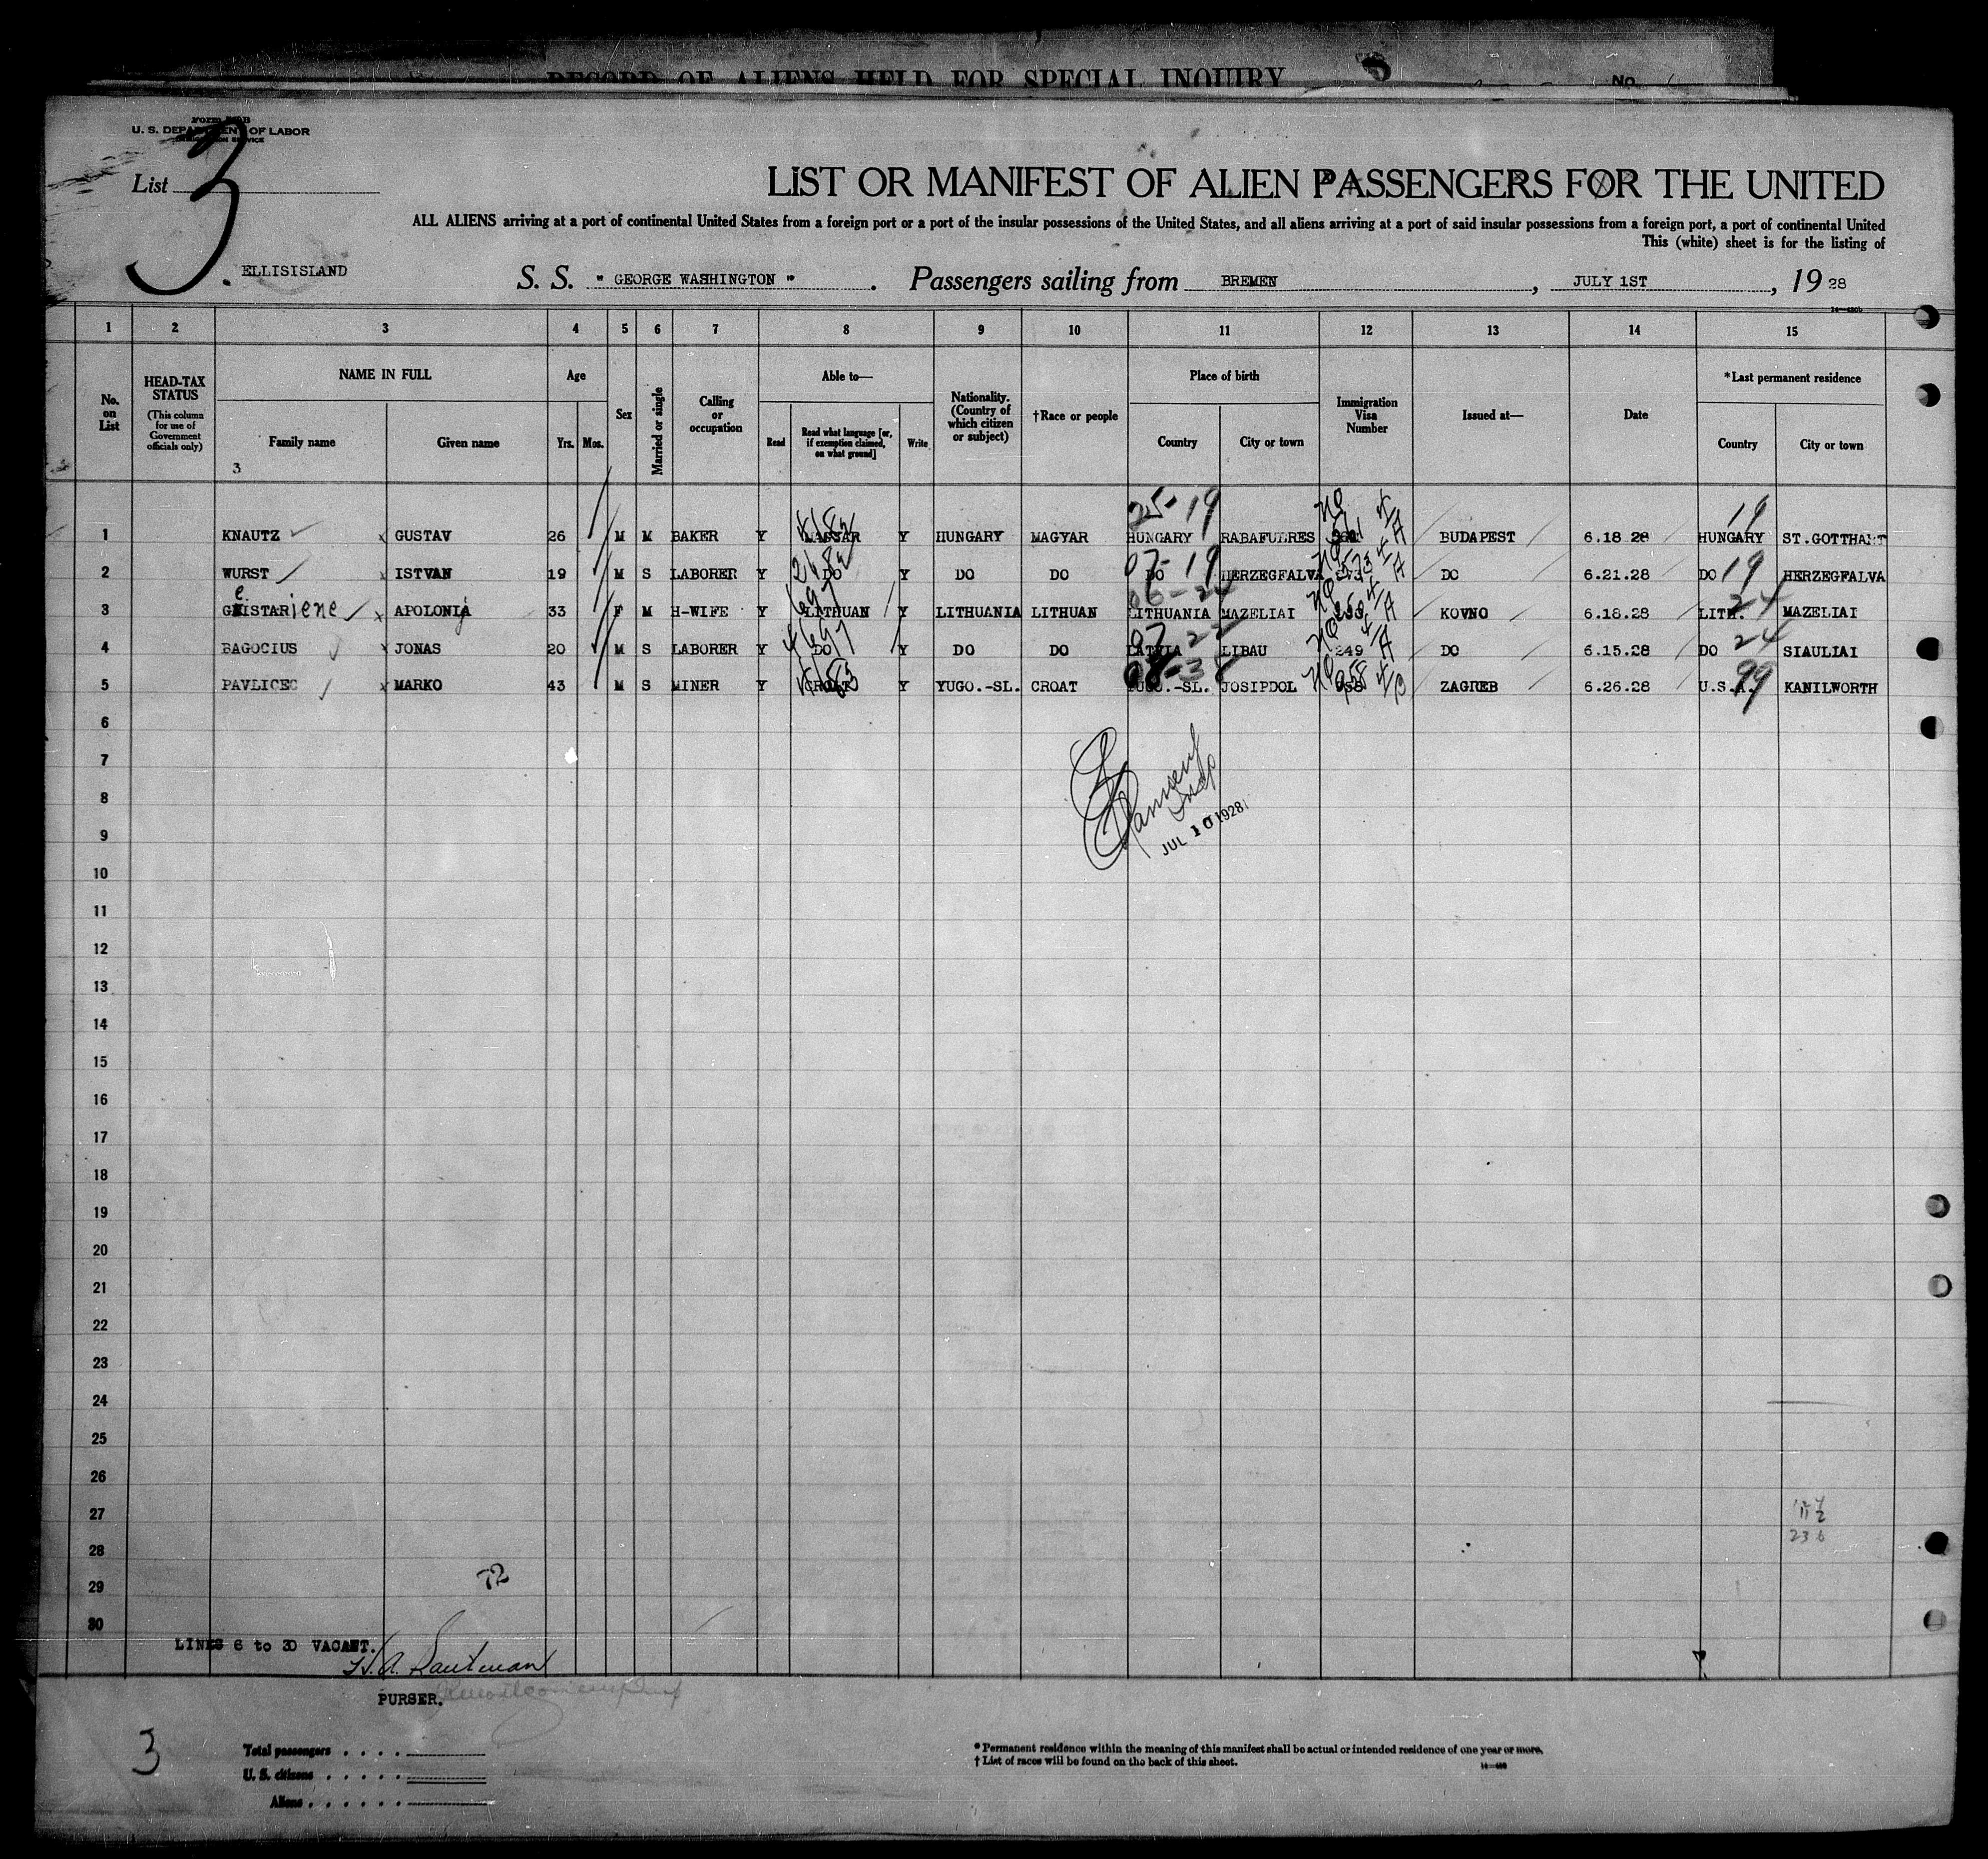 RECORD OF ALIENS HELD FOR SPECIAL INQUIRY No.
U. S. DEPARTMENT OF LABOR
List 3
LIST OR MANIFEST OF ALIEN PASSENGERS FOR THE UNITED
ALL ALIENS arriving at a port of continental United States from a foreign port or a port of the insular possessions of the United States, and all aliens arriving at a port of said insular possessions from a foreign port, a port of continental United
This (white) sheet is for the listing of
ELLISISLAND S. S. " GEORGE WASHINGTON ". Passengers sailing from BREMEN, JULY 1ST, 19 28
1 2 3 4 5 6 7 8 9 10 11 12 13 14 15
No. on List
HEAD-TAX STATUS (This column for use of Government officials only)
NAME IN FULL
Family name
Given name
Age
Yrs.
Mos.
Sex
Married or single
Calling or occupation
Able to—
Read
Read what language [or, if exemption claimed, on what ground]
Write
Nationality. (Country of which citizen or subject)
†Race or people
Place of birth
Country
City or town
Immigration Visa Number
Issued at—
Date
*Last permanent residence
Country
City or town
3
25-19 19
1 KNAUTZ GUSTAV 26 M M BAKER Y MAGYAR Y HUNGARY MAGYAR HUNGARY RABAFUERES BUDAPEST 6.18 28 HUNGARY ST.GOTTHART
07-19 19
2 WURST ISTVAN 19 M S LABORER Y DO Y DO DO DO HERZEGFALVA DO 6.21.28 DO HERZEGFALVA
06-24 24
3 GEISTARiene APOLONIJ 33 F M H-WIFE Y LITHUAN Y LITHUANIA LITHUAN LITHUANIA MAZELIAI KOVNO 6.18.28 LITH. MAZELIAI
07 22 24
4 BAGOCIUS JONAS 20 M S LABORER Y DO Y DO DO LATVIA LIBAU 249 DO 6.15.28 DO SIAULIAI
08-38 99
5 PAVLICEC MARKO 43 M S MINER Y CROAT Y YUGO.-SL. CROAT YUGO.-SL. JOSIPDOL 958 ZAGREB 6.26.28 U.S.A. KANILWORTH
6
7
8
JUL 10 1928
9
10
11
12
13
14
15
16
17
18
19
20
21
22
23
24
25
26
27
28
29
72
30
LINES 6 to 30 VACANT.
PURSER.
3
Total passengers
U. S. citizens
Aliens
* Permanent residence within the meaning of this manifest shall be actual or intended residence of one year or more.
† List of races will be found on the back of this sheet.